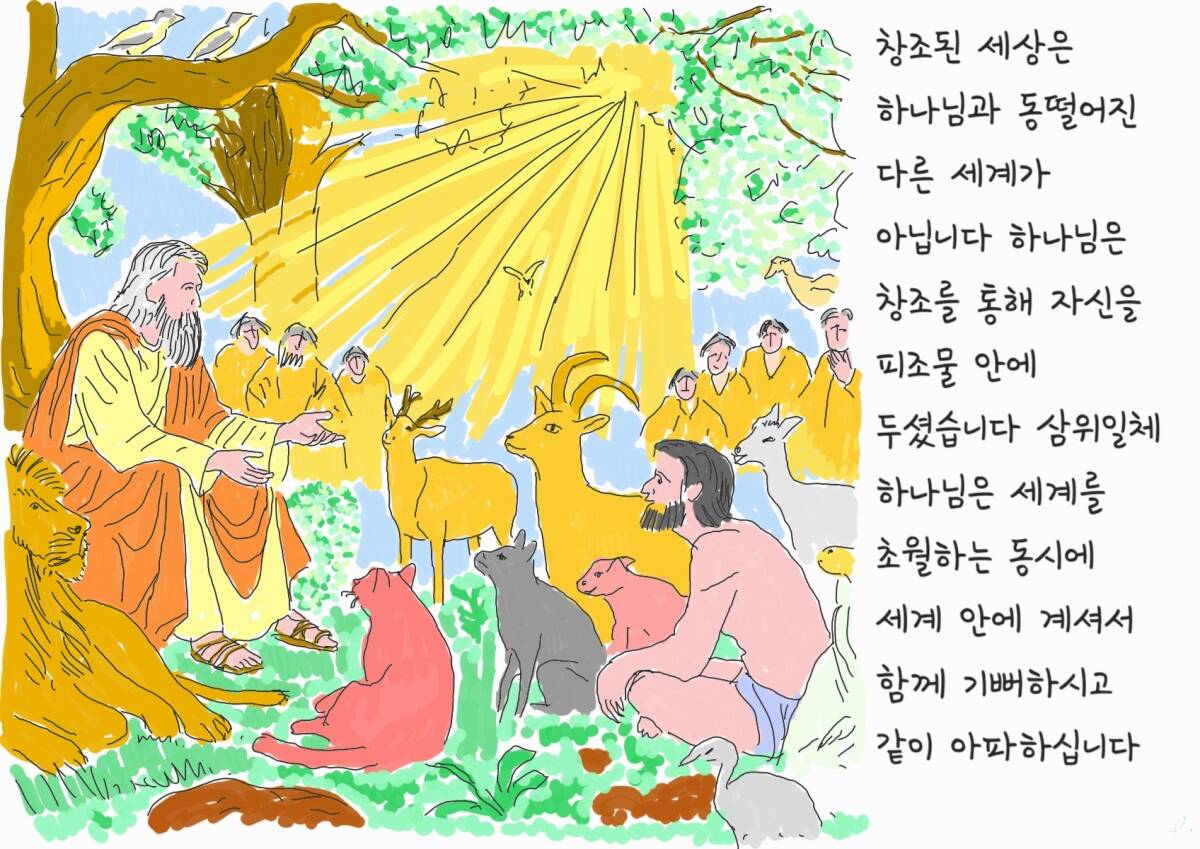 창조된 세상은
하나님과 동떨어진
다른 세계가
아닙니다 하나님은
창조를 통해 자신을
피조물 안에
두셨습니다 삼위일체
하나님은 세계를
초월하는 동시에
세계 안에 계셔서
함께 기뻐하시고
같이 아파하십니다